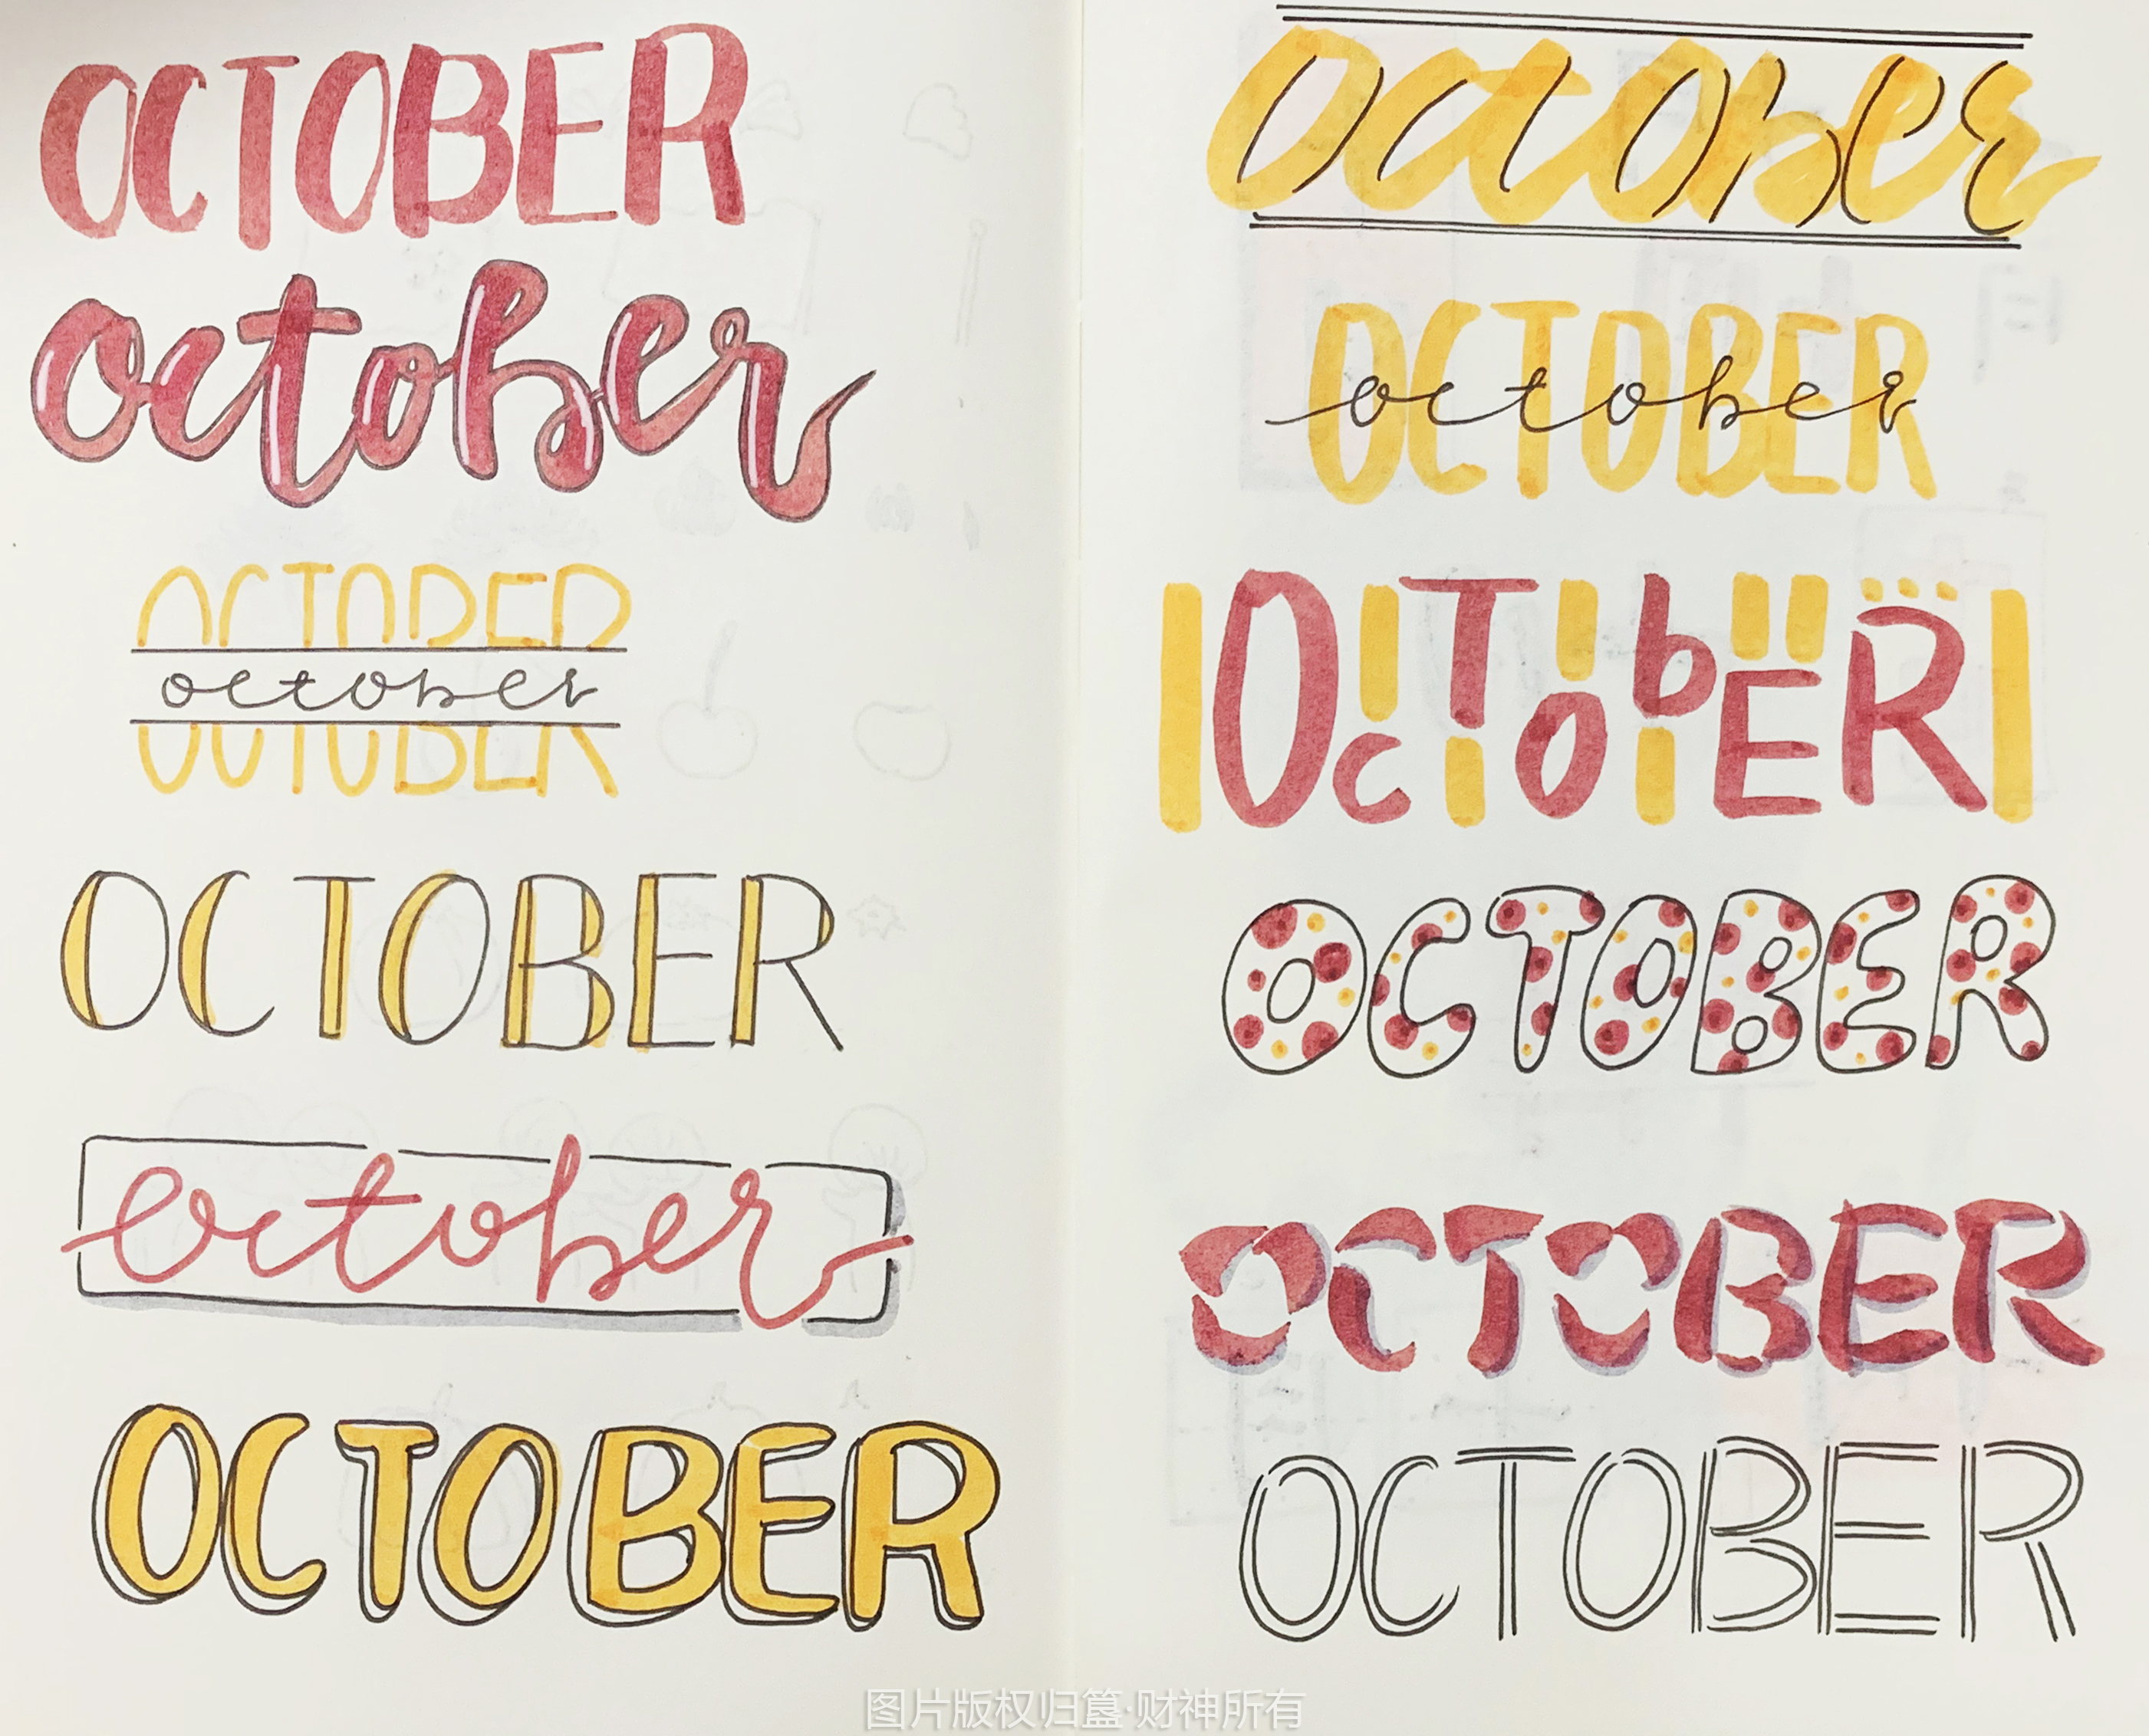 OCTOBER
october
OCTOBER
october
OCTOBER
october
OCTOBER
october
OCTOBER
october
OCTObER
OCTOBER
OCTOBER
OCTOBER
图片版权归簋·财神所有